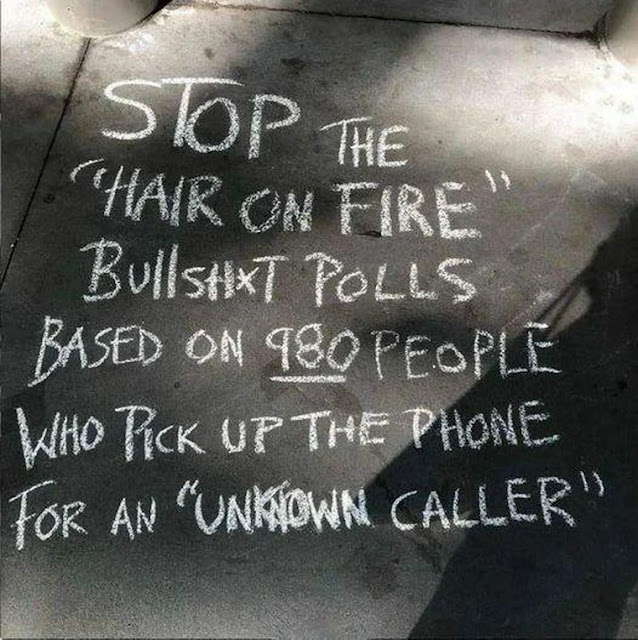 STOP THE
"HAIR ON FIRE"
BullSH*T POLLS
BASED ON 980 PEOPLE
WHO PICK UP THE PHONE
FOR AN "UNKNOWN CALLER"